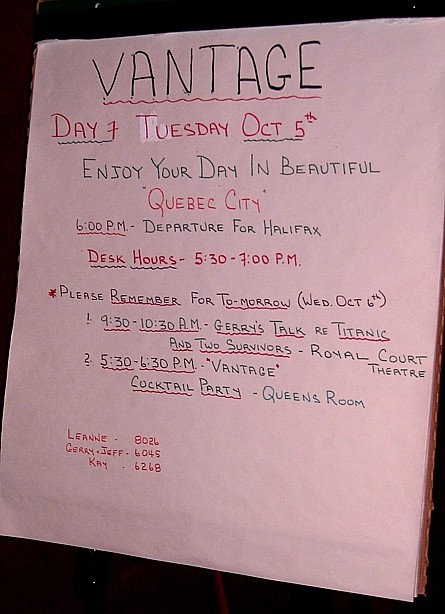 VANTAGE
DAY 7 TUESDAY OCT 5th
ENJOY YOUR DAY IN BEAUTIFUL
"QUEBEC CITY"
6:00 P.M. - DEPARTURE FOR HALIFAX
DESK HOURS - 5:30 - 7:00 P.M.
*PLEASE REMEMBER FOR TO-MORROW (WED. OCT 6th)
1. 9:30 - 10:30 A.M. - GERRY'S TALK RE TITANIC
AND TWO SURVIVORS - ROYAL COURT
THEATRE
2. 5:30 - 6:30 P.M. - "VANTAGE"
COCKTAIL PARTY - QUEENS ROOM
LEANNE - 8026
GERRY + JEFF - 6045
KAY - 6268